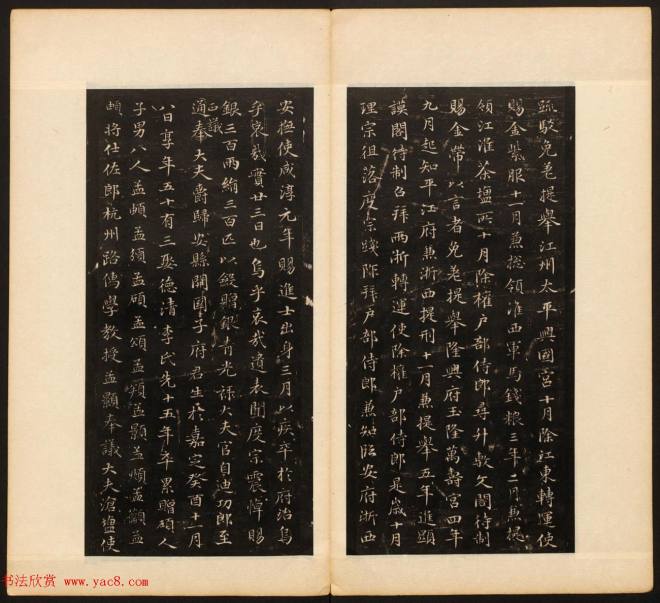 疏駁免差提舉江州太平興國宮十月除江東轉運使
賜金紫服十一月兼緫領淮西軍馬錢粮三年二月兼提
領江淮茶鹽所十月除權户部侍郎尋升敷文閣待制
賜金帶以言者免差提舉隆興府玉隆萬壽宮四年
九月起知平江府兼浙西提刑十一月兼提舉五年進顯
謨閣待制召拜兩浙轉運使除權户部侍郎是歲十月
理宗徂落度宗踐阼拜户部侍郎兼知臨安府浙西
安撫使咸淳元年賜進士出身三月以疾卒於府治烏
乎哀哉實廿三日也烏乎哀哉遺表聞度宗震悼賜
銀三百兩絹三百匹以銀贈銀青光祿大夫官自迪功郎至
正議
通奉大夫爵歸安縣開國子府君生於嘉定癸酉十一月
八日享年五十有三娶德清李氏先十五年卒累贈碩人
子男八人孟頔孟頖孟碩孟頌孟頫孟顥孟頫孟籲孟
頔將仕佐郎杭州路儒學教授孟顥奉議大夫滄鹽使
书法欣赏 www.yac8.com